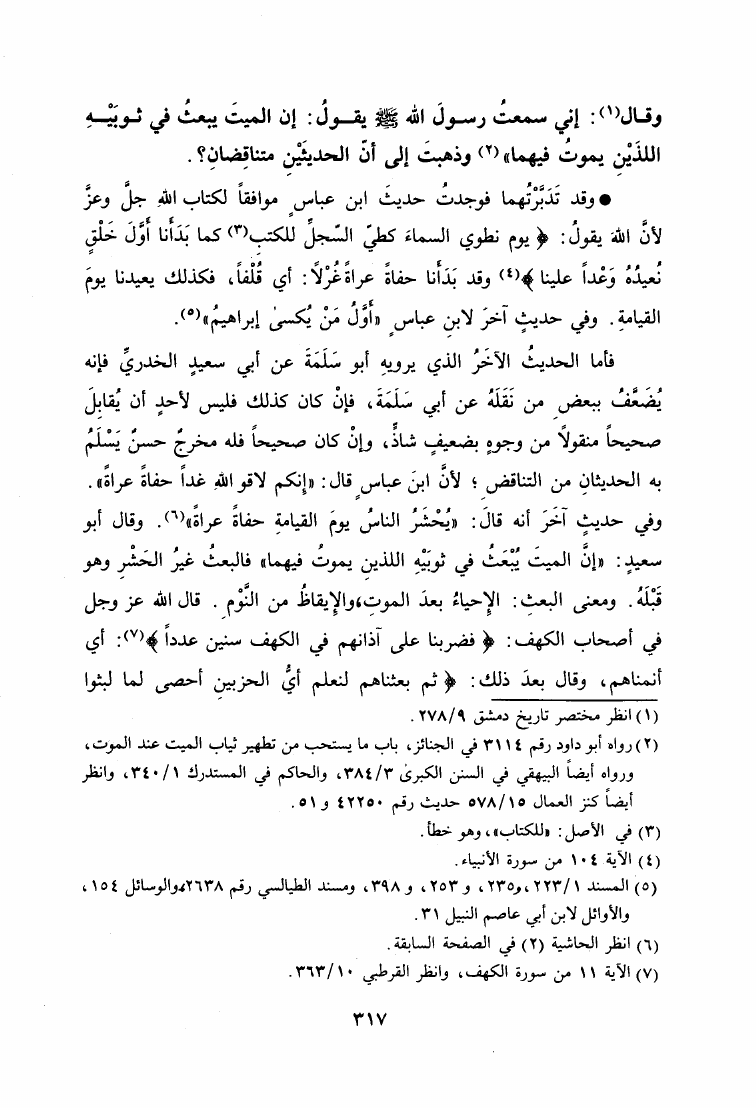 وقـال(١): إني سمعتُ رسـولَ الله ﷺ يقـولُ: إن الميتَ يبعثُ في ثـوبَيْـهِ
اللذَيْنِ يموتُ فيهما»(٢) وذهبتَ إلى أنّ الحديثَيْنِ متناقِضانِ؟.
● وقد تَدَبَّرْتُهما فوجدتُ حديثَ ابن عباسٍ موافقاً لكتاب اللهِ جلَّ وعزَّ
لأنَّ اللهَ يقولُ: ﴿ يوم نطوي السماءَ كطيّ السّجلِّ للكتبِ(٣) كما بَدَأنا أَوَّلَ خَلْقٍ
نُعيدُهُ وَعْداً علينا ﴾(٤) وقد بَدَأنا حفاةً عراةً غُرْلًا: أي قُلْفاً، فكذلك يعيدنا يومَ
القيامةِ. وفي حديثٍ آخرَ لابن عباسٍ «أَوَّلُ مَنْ يُكسىٰ إبراهيمُ»(٥).
فأما الحديثُ الآخَرُ الذي يرويهِ أبو سَلَمَةَ عن أبي سعيدٍ الخدريِّ فإنه
يُضَعَّفُ ببعضِ من نَقَلَهُ عن أبي سَلَمَةَ، فإنْ كان كذلك فليس لأحدٍ أن يُقابِلَ
صحيحاً منقولاً من وجوهٍ بضعيفٍ شاذٍّ، وإنْ كان صحيحاً فله مخرجٌ حسنٌ يَسْلَمُ
به الحديثانِ من التناقضِ ؛ لأنَّ ابنَ عباسٍ قال: «إنكم لاقو اللهِ غداً حفاةً عراةً».
وفي حديثٍ آخَرَ أنه قالَ: «يُحْشَرُ الناسُ يومَ القيامةِ حفاةً عراةً»(٦). وقال أبو
سعيدٍ: «إنَّ الميتَ يُبْعَثُ في ثوبَيْهِ اللذينِ يموتُ فيهما» فالبعثُ غيرُ الحَشْرِ وهو
قَبْلَهُ. ومعنى البعثِ: الإحياءُ بعدَ الموتِ،والإيقاظُ من النَّوْمِ. قال الله عز وجل
في أصحاب الكهفِ: ﴿ فضربنا على آذانهم في الكهف سنين عدداً ﴾(٧): أي
أنمناهم، وقال بعدَ ذلك: ﴿ ثم بعثناهم لنعلم أيُّ الحزبين أحصى لما لبثوا
(١) انظر مختصر تاريخ دمشق ٢٧٨/٩.
(٢) رواه أبو داود رقم ٣١١٤ في الجنائز، باب ما يستحب من تطهير ثياب الميت عند الموت،
ورواه أيضاً البيهقي في السنن الكبرىٰ ٣٨٤/٣، والحاكم في المستدرك ٣٤٠/١، وانظر
أيضاً كنز العمال ٥٧٨/١٥ حديث رقم ٤٢٢٥٠ و ٥١.
(٣) في الأصل: «للكتاب»، وهو خطأ.
(٤) الآية ١٠٤ من سورة الأنبياء.
(٥) المسند ٢٢٣/١، و٢٣٥، و ٢٥٣، و ٣٩٨، ومسند الطيالسي رقم ٢٦٣٨،والوسائل ١٥٤،
والأوائل لابن أبي عاصم النبيل ٣١.
(٦) انظر الحاشية (٢) في الصفحة السابقة.
(٧) الآية ١١ من سورة الكهف، وانظر القرطبي ٣٦٣/١٠.
٣١٧